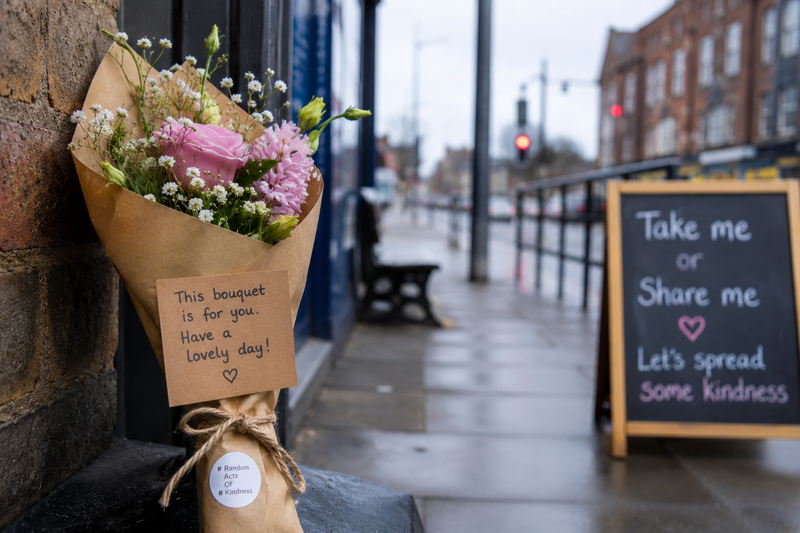 This bouquet
is for you.
Have a
lovely day!
# Random
Acts
Of
# Kindness
Take me
or
Share me
Let's spread
some kindness